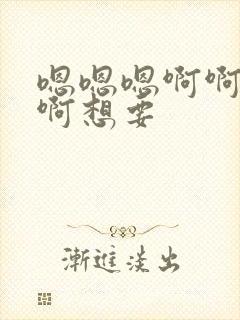 嗯嗯嗯啊啊
啊想要
漸進淡出